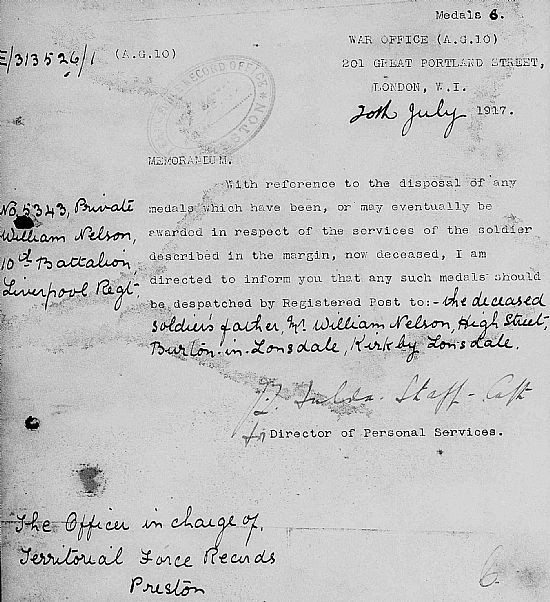 Medals 6.
E/313526/1 (A.G.10)
WAR OFFICE (A.G.10)
201 GREAT PORTLAND STREET,
LONDON, W.I.
20th July 1917.
RECORD OFFICE
PRESTON
MEMORANDUM.
No 5343, Private
William Nelson,
10th Battalion,
Liverpool Regt.
With reference to the disposal of any
medals which have been, or may eventually be
awarded in respect of the services of the soldier
described in the margin, now deceased, I am
directed to inform you that any such medals should
be despatched by Registered Post to:- the deceased
soldier's father, Mr. William Nelson, High Street,
Burton-in-Lonsdale, Kirkby Lonsdale.
Staff-Capt
for Director of Personal Services.
The Officer in charge of,
Territorial Force Records
Preston
6.